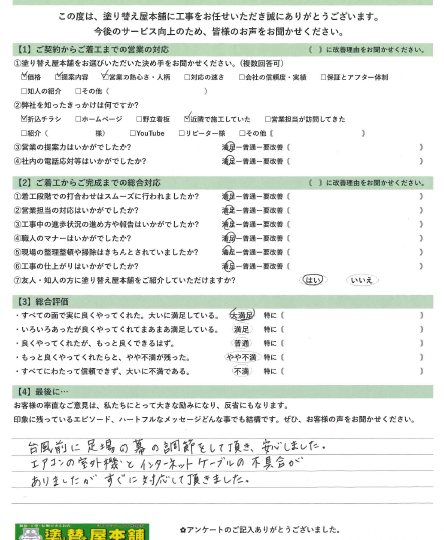 この度は、塗り替え屋本舗に工事をお任せいただき誠にありがとうございます。
今後のサービス向上のため、皆様のお声をお聞かせください。
【1】ご契約からご着工までの営業の対応 （ ）に改善理由をお聞かせください。
①塗り替え屋本舗をお選びいただいた決め手をお聞かせください。（複数回答可）
☑価格 ☑提案内容 ☑営業の熱心さ・人柄 □対応の速さ □会社の信頼度・実績 □保証とアフター体制
□知人の紹介 □その他（ ）
②弊社を知ったきっかけは何ですか？
☑折込チラシ □ホームページ □野立看板 ☑近隣で施工していた □営業担当が訪問してきた
□紹介（ 様） □YouTube □リピーター様 □その他（ ）
③営業の提案力はいかがでしたか？ 満足ー普通ー要改善（ ）
④社内の電話応対等はいかがでしたか？ 満足ー普通ー要改善（ ）
【2】ご着工からご完成までの総合対応 （ ）に改善理由をお聞かせください。
①着工段階での打合わせはスムーズに行われましたか？ 満足ー普通ー要改善（ ）
②営業担当の対応はいかがでしたか？ 満足ー普通ー要改善（ ）
③工事中の進歩状況の進め方や報告はいかがでしたか？ 満足ー普通ー要改善（ ）
④職人のマナーはいかがでしたか？ 満足ー普通ー要改善（ ）
⑤現場の整理整頓や掃除はきちんとされていましたか？ 満足ー普通ー要改善（ ）
⑥工事の仕上がりはいかがでしたか？ 満足ー普通ー要改善（ ）
⑦友人・知人の方に塗り替え屋本舗をご紹介していただけますか？ はい いいえ
【3】総合評価
・すべての面で実に良くやってくれた。大いに満足している。 大満足 特に（ ）
・いろいろあったが良くやってくれてまあまあ満足している。 満足 特に（ ）
・良くやってくれたが、もっと良くできるはず。 普通 特に（ ）
・もっと良くやってくれたらと、やや不満が残った。 やや不満 特に（ ）
・すべてにわたって信頼できず、大いに不満である。 不満 特に（ ）
【4】最後に…
お客様の率直なご意見は、私たちにとって大きな励みになり、反省にもなります。
印象に残っているエピソード、ハートフルなメッセージどんな事でも結構です。ぜひ、お客様の声をお聞かせください。
台風前に足場の幕の調節をして頂き、安心しました。
エアコンの室外機とインターネットケーブルの不具合が
ありましたがすぐに対応して頂きました。
塗替え屋本舗
✿アンケートのご記入ありがとうございました。